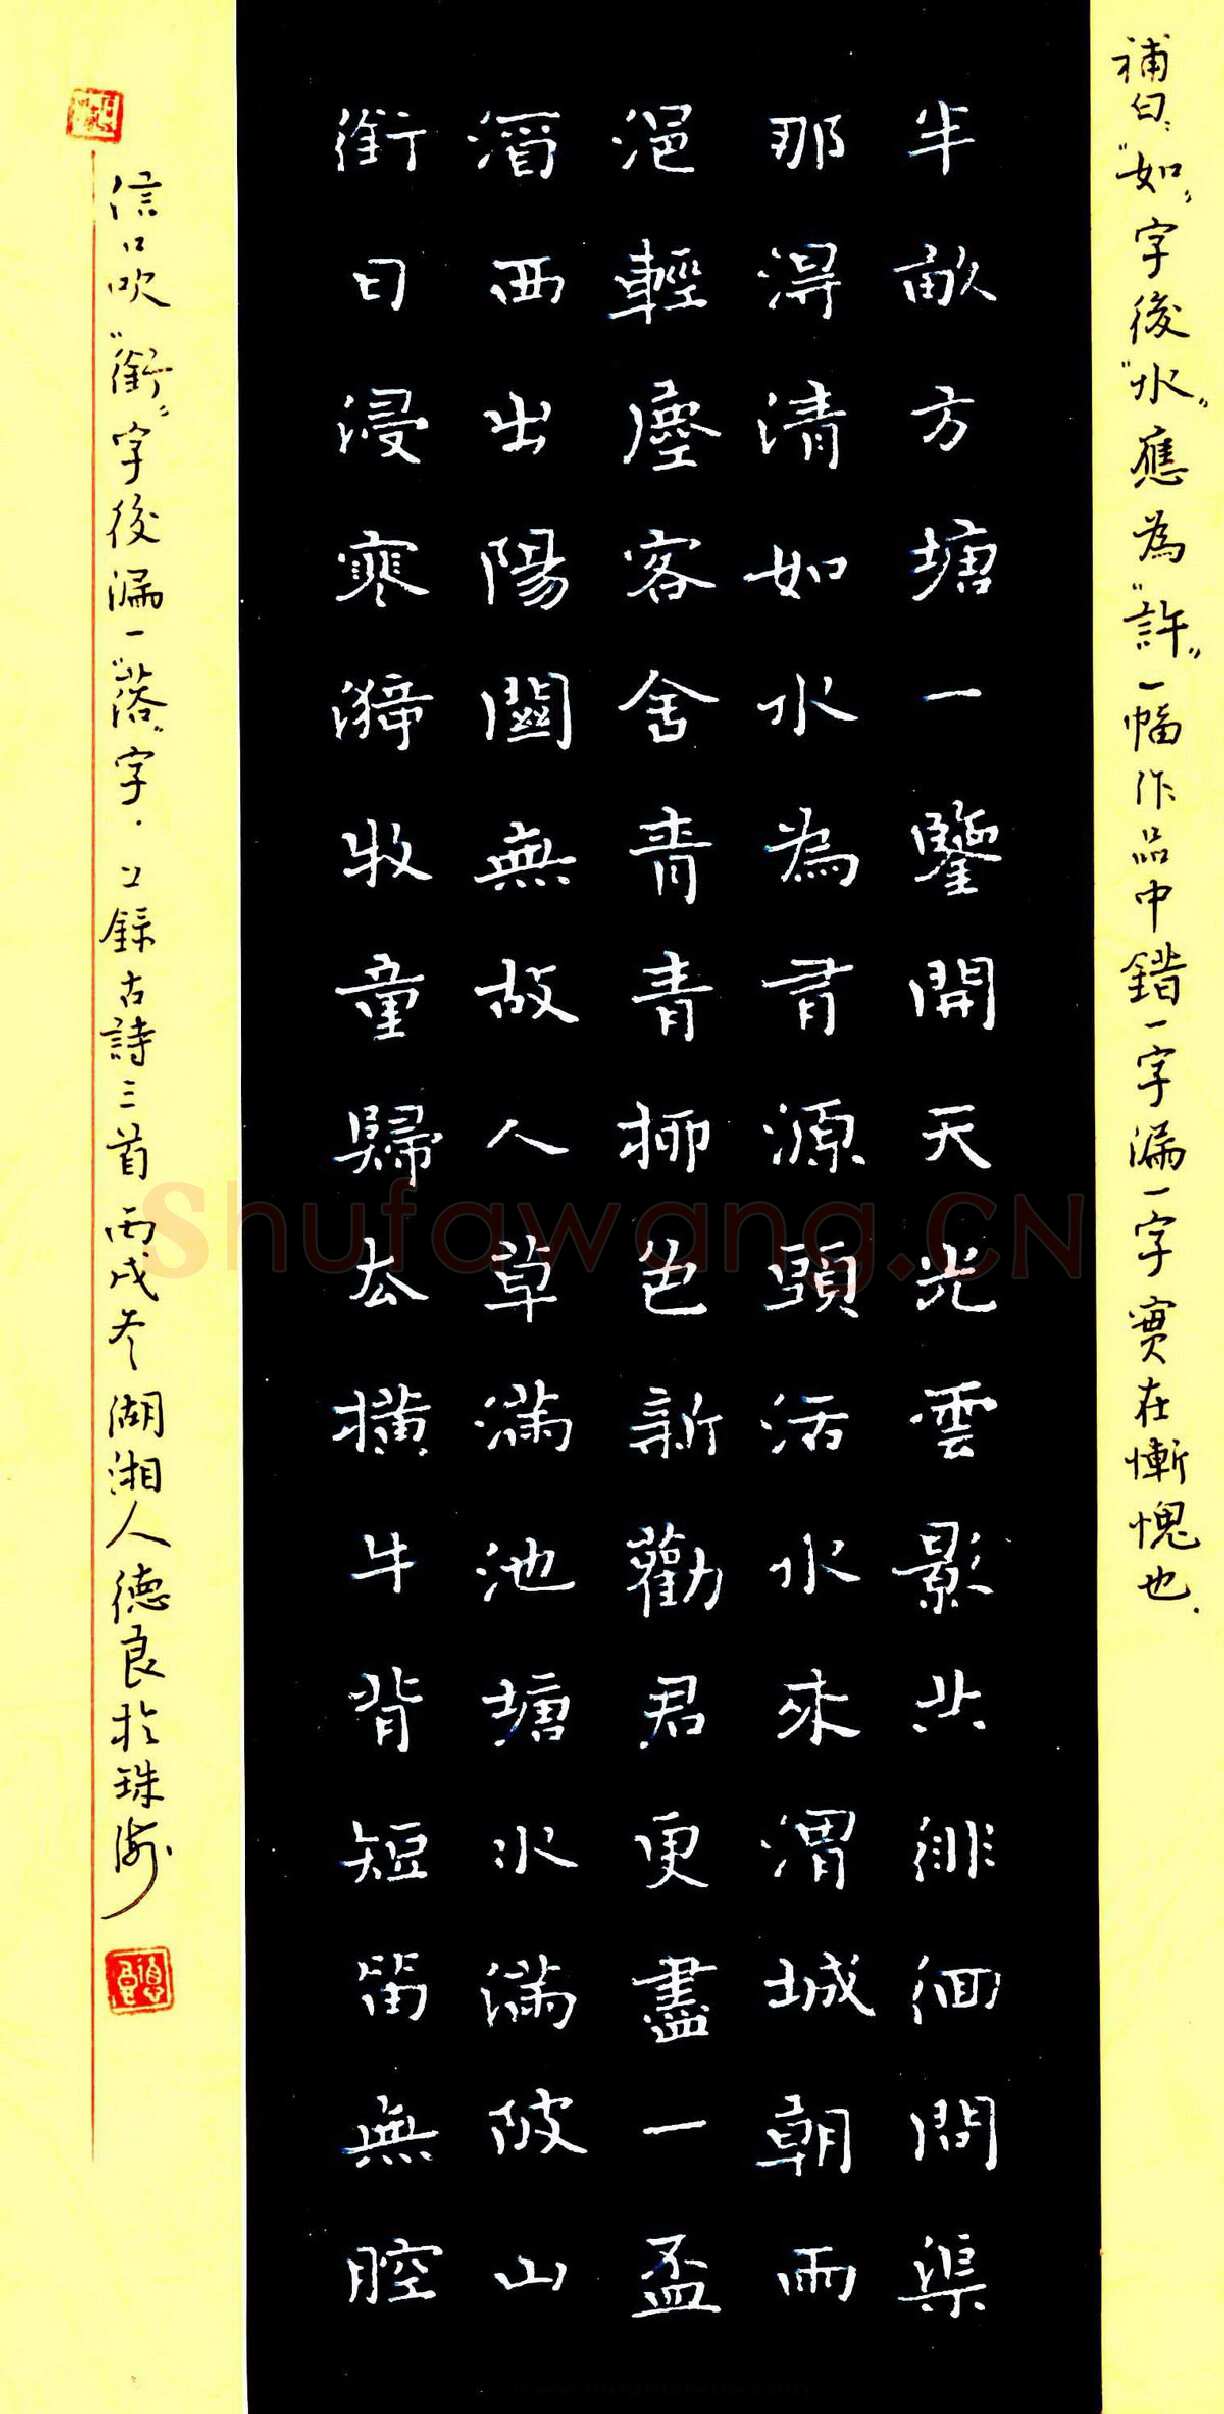 補曰："如"字後"水"應為"許"一幅作品中錯一字漏一字實在慚愧也.
半畝方塘一鑒開天光雲影共徘徊問渠
那得清如水為有源頭活水來渭城朝雨
浥輕塵客舍青青柳色新勸君更盡一盃
酒西出陽關無故人草滿池塘水滿陂山
銜日浸寒漪牧童歸去橫牛背短笛無腔
信口吹"銜"字後漏一"落"字.上錄古詩三首丙戌冬湖湘人德良於珠海
德良
Shufawang.CN